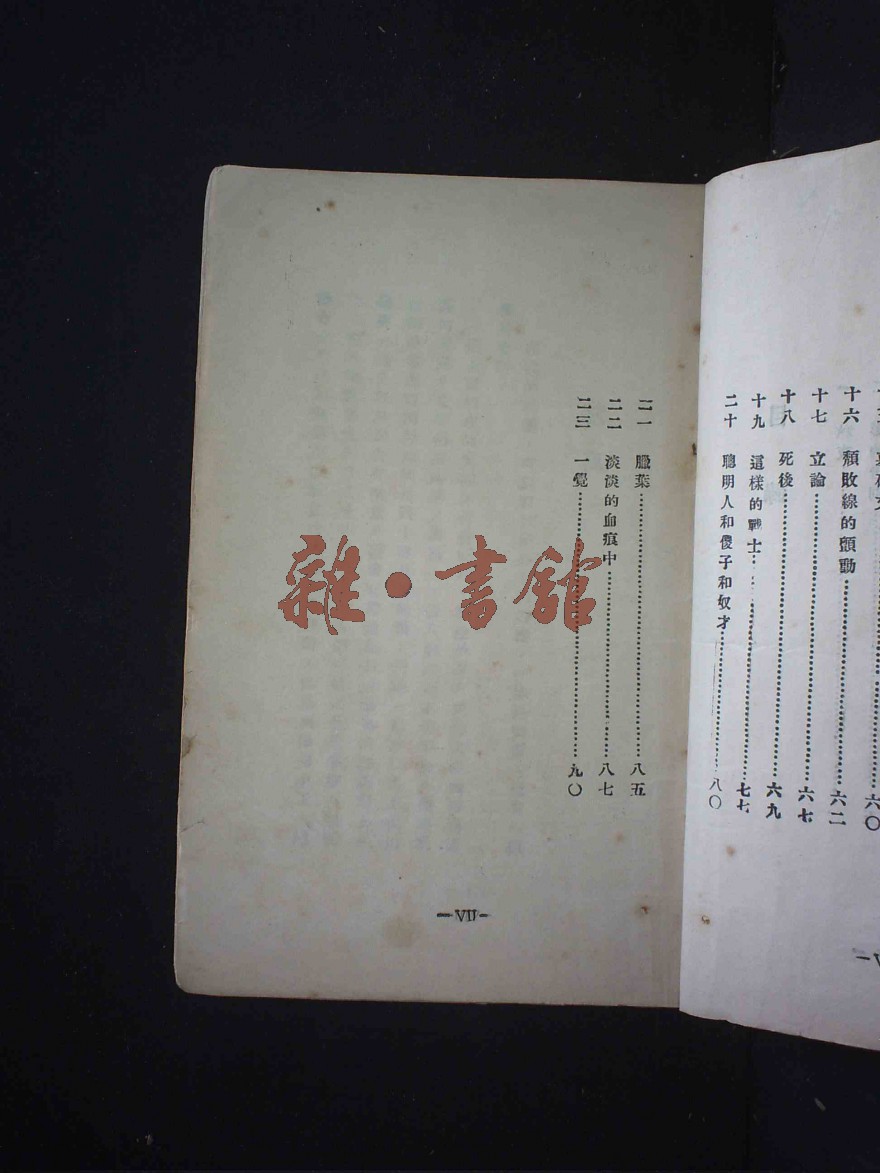 十六 頹敗線的顫動 六二
十七 立論 六七
十八 死後 六九
十九 這樣的戰士 七七
二十 聰明人和傻子和奴才 八〇
二一 臘葉 八五
二二 淡淡的血痕中 八七
二三 一覺 九〇
—VII—
雜·書館